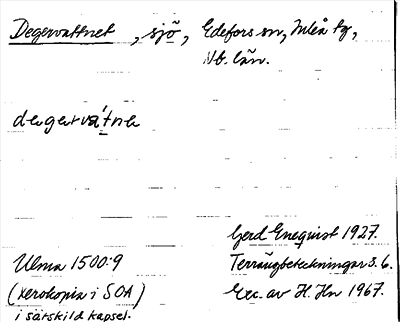 Degervattnet, sjö, Edefors sn, Luleå tg,
Nb. län.
degərvátnə
Gerd Enequist 1927.
Ulma 1500:9 Terrängbeteckningar s. 6.
(xerokopia i SOA) Exc. av H. Hn 1967.
i särskild kapsel.